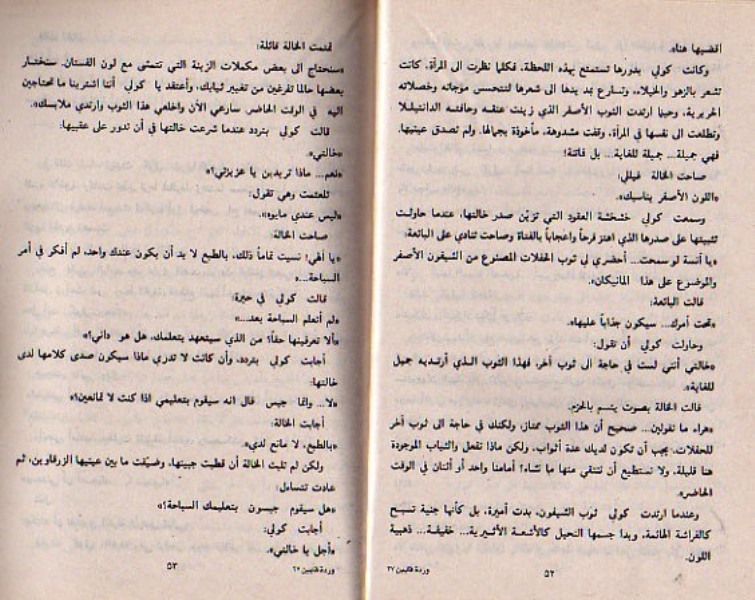 اقضيها هنا».
وكانت كولي بدورها تستمتع بهذه اللحظة، فكلما نظرت الى المرآة، كانت
تشعر بالزهو والخيلاء، وتسارع بمد يدها الى شعرها لتتحسس موجاته وخصلاته
الحريرية، وحينما ارتدت الثوب الأصفر الذي زينت عنقه وحافته الدانتيللا
وتطلعت الى نفسها في المرآة، وقفت مشدوهة، مأخوذة بجمالها. ولم تصدق عينيها.
فهي جميلة... جميلة للغاية... بل فاتنة!
صاحت الخالة فيللي:
«اللون الأصفر يناسبك».
وسمعت كولي خشخشة العقود التي تزين صدر خالتها، عندما حاولت
تثبيتها على صدرها الذي اهتز فرحاً واعجاباً بالفتاة وصاحت تنادي على البائعة:
«يا آنسة لو سمحت... أحضري لي ثوب الحفلات المصنوع من الشيفون الأصفر
والموضوع على هذا المانيكان».
قالت البائعة:
«تحت أمرك... سيكون جذاباً عليها».
وحاولت كولي أن تقول:
«خالتي أنني لست في حاجة الى ثوب آخر، فهذا الثوب الذي أرتديه جميل
للغاية».
قالت الخالة بصوت يتسم بالحزم:
«هراء ما تقولين... صحيح أن هذا الثوب ممتاز، ولكنك في حاجة الى ثوب آخر
للحفلات، يجب أن تكون لديك عدة أثواب، ولكن ماذا نفعل والثياب الموجودة
هنا قليلة، ولا نستطيع أن ننتقي منها ما نشاء؟ أمامنا واحد أو أثنان في الوقت
الحاضر».
وعندما ارتدت كولي ثوب الشيفون، بدت أميرة، بل كأنها جنية تسبح
كالفراشة الهائمة، وبدا جسمها النحيل كالأشعة الأثيرية... خفيفة... ذهبية
اللون.
٥٢
وردة قايين ٢٧
تمتمت الخالة قائلة:
«سنحتاج الى بعض مكملات الزينة التي تتمشى مع لون الفستان. سنختار
بعضها حالما تفرغين من تغيير ثيابك، وأعتقد يا كولي أننا اشترينا ما تحتاجين
اليه في الوقت الحاضر. سارعي الآن واخلعي هذا الثوب وارتدي ملابسك».
قالت كولي بتردد عندما شرعت خالتها في أن تدور على عقبيها:
«خالتي».
«نعم... ماذا تريدين يا عزيزتي؟»
تلعثمت وهي تقول:
«ليس عندي مايوه».
صاحت الخالة:
«يا الهي! نسيت تماماً ذلك، بالطبع لا بد أن يكون عندك واحد، لم أفكر في أمر
السباحة...»
قالت كولي في حيرة:
«لم أتعلم السباحة بعد...»
«ألا تعرفينها حقاً؟ من الذي سيتعهد بتعليمك، هل هو داني؟»
أجابت كولي بتردد، وأن كانت لا تدري ماذا سيكون صدى كلامها لدى
خالتها:
«لا... وانما جيس قال انه سيقوم بتعليمي اذا كنت لا تمانعين؟»
أجابت الخالة:
«بالطبع، لا مانع لدي».
ولكن لم تلبث الخالة أن قطبت جبينها، وضيقت ما بين عينيها الزرقاوين، ثم
عادت تتساءل:
«هل سيقوم جيسون بتعليمك السباحة؟»
أجابت كولي:
«أجل يا خالتي».
٥٣
وردة قايين